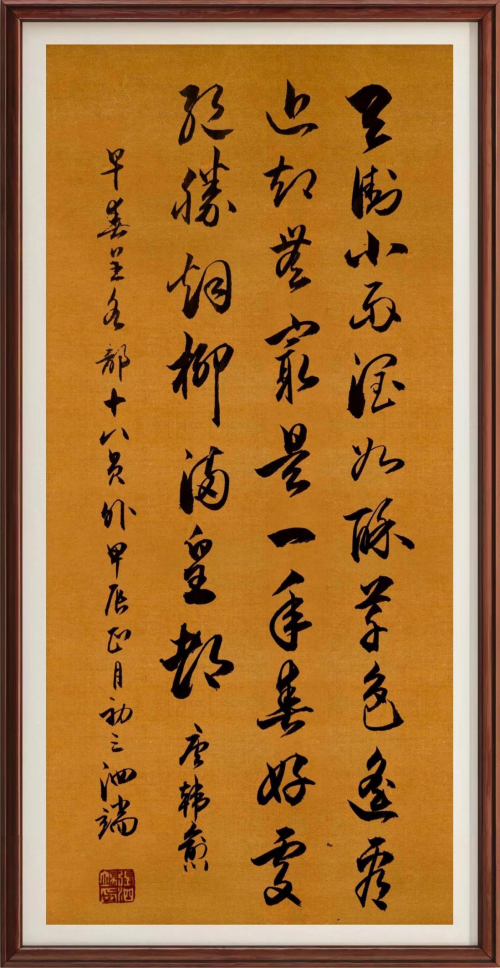 天街小雨潤如酥草色遥看
近却無最是一年春好處
絕勝烟柳滿皇都 唐韓愈
早春呈水部十八員外甲辰正月初三泗端